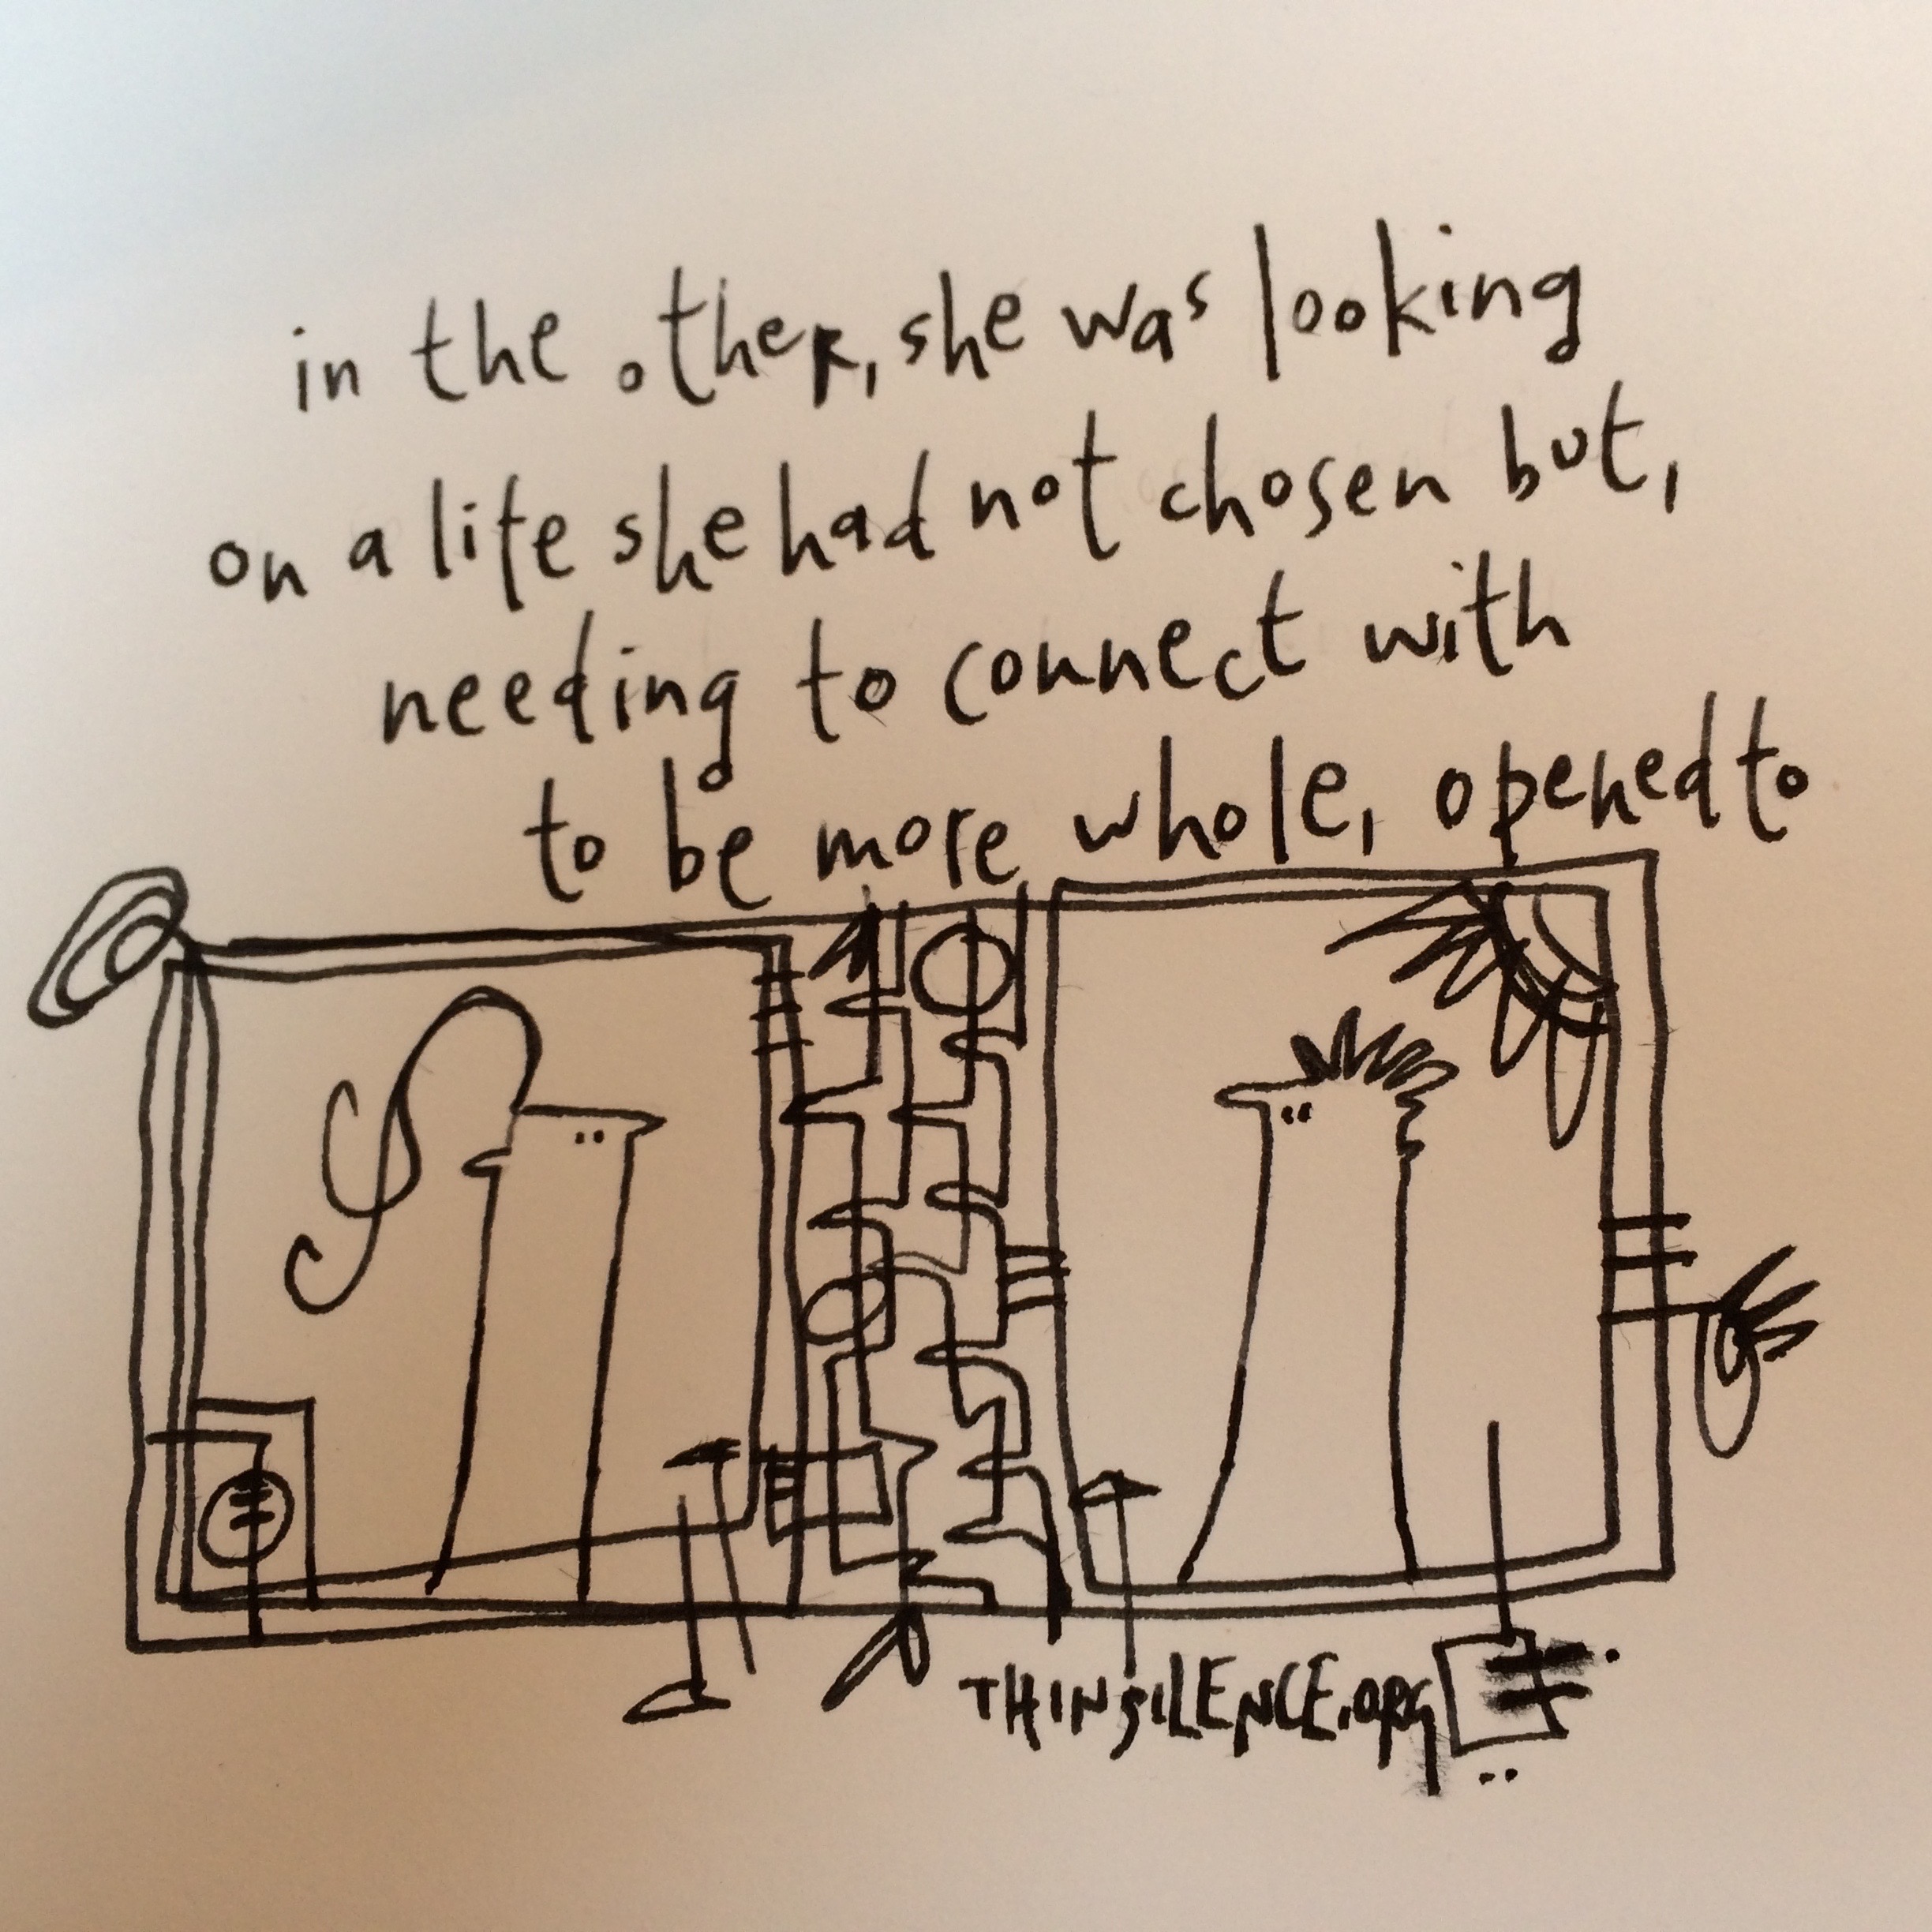 in the other, she was looking
on a life she had not chosen but,
needing to connect with
to be more whole, opened to
THINSILENCE.ORG